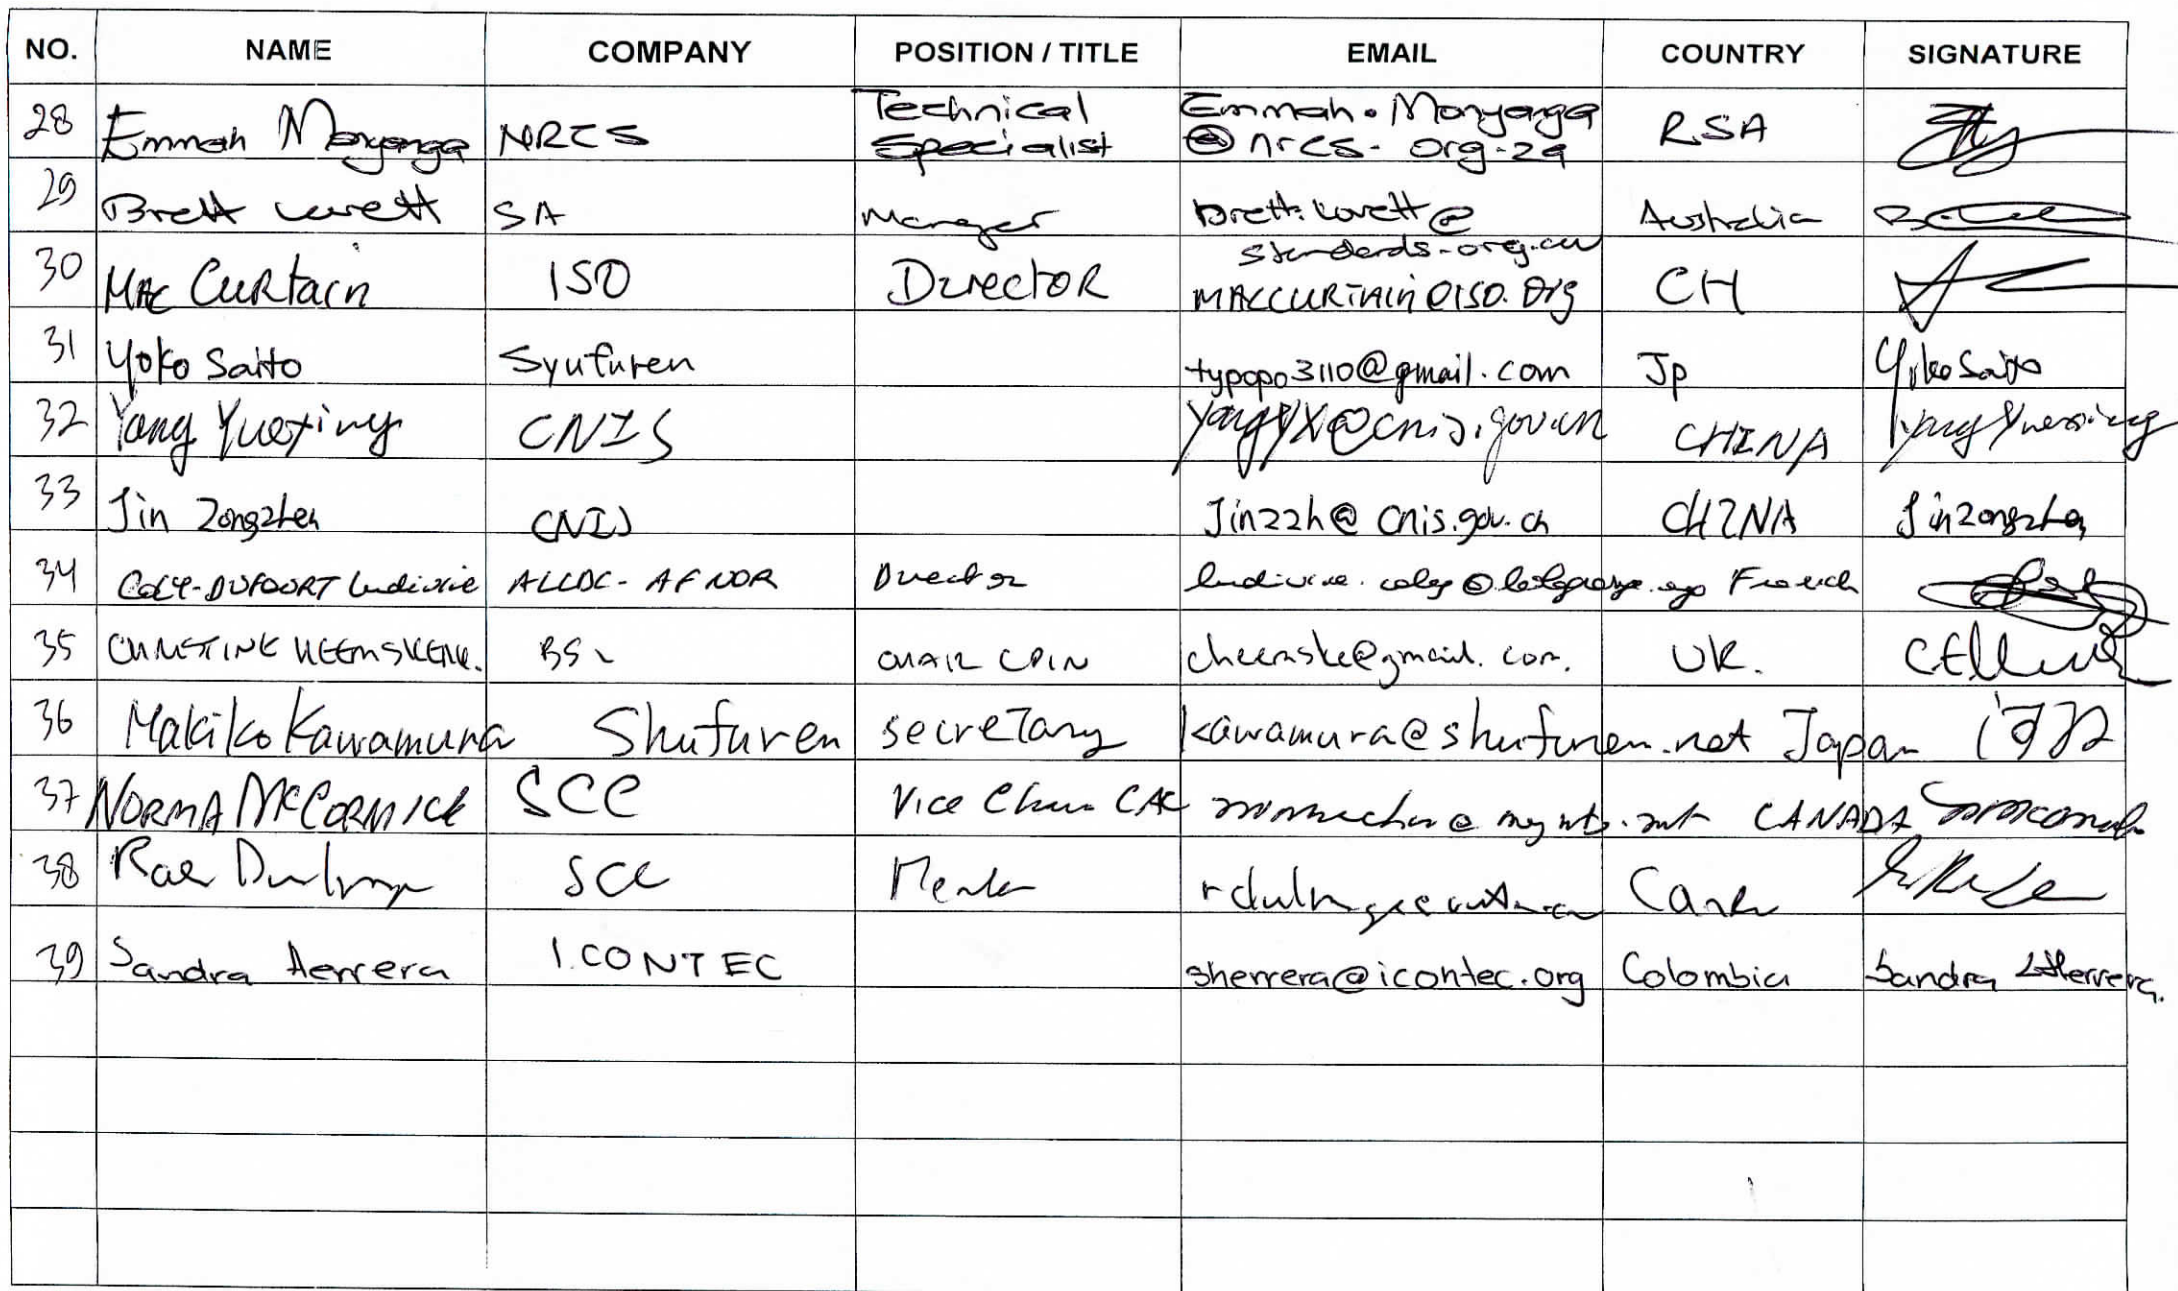 NO. NAME COMPANY POSITION / TITLE EMAIL COUNTRY SIGNATURE
28 Emmah Monyanga NRCS Technical Specialist Emmah.Monyanga @nrcs.org.za RSA
29 Brett Lovett SA Manager brett.lovett@ standards.org.au Australia
30 MAC CURTAIN ISO DIRECTOR MACCURTAIN@ISO.Org CH
31 Yoko Saito Syufuren typopo3110@gmail.com Jp Yoko Saito
32 Yang Yuexing CNIS yangyx@cnis.gov.cn CHINA Yang Yuexing
33 Jin Zongzhen CNIS Jinzzh@cnis.gov.cn CHINA Jin Zongzhen
34 COLY-DUFOURT Ludivine ALLDC-AFNOR Director French
35 CHRISTINE HEEMSKERK. BSI CHAIR CPIN cheemske@gmail.com. UK.
36 Makiko Kawamura Shufuren secretary kawamura@shufuren.net Japan
37 NORMA McCORMICK SCC Vice Chair CAC CANADA
38 Rae SCC
39 Sandra Herrera ICONTEC sherrera@icontec.org Colombia Sandra Herrera.